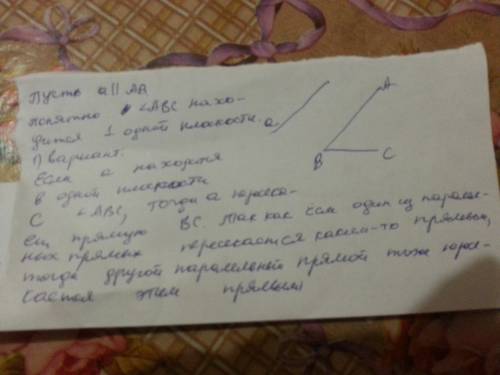 Пусть a || AB
понятно ∠ABC нахо-
дится 1 одной плоскости.
1) вариант.
Если a находится
в одной плоскости
с ∠ABC, тогда a пересе-
ещ прямую BC. Так как если один из паралел-
ных прямых пересекается какой-то прямым,
тогда другой паралельной прямой тоже пересе-
кается этим прямым
a
A
B
C